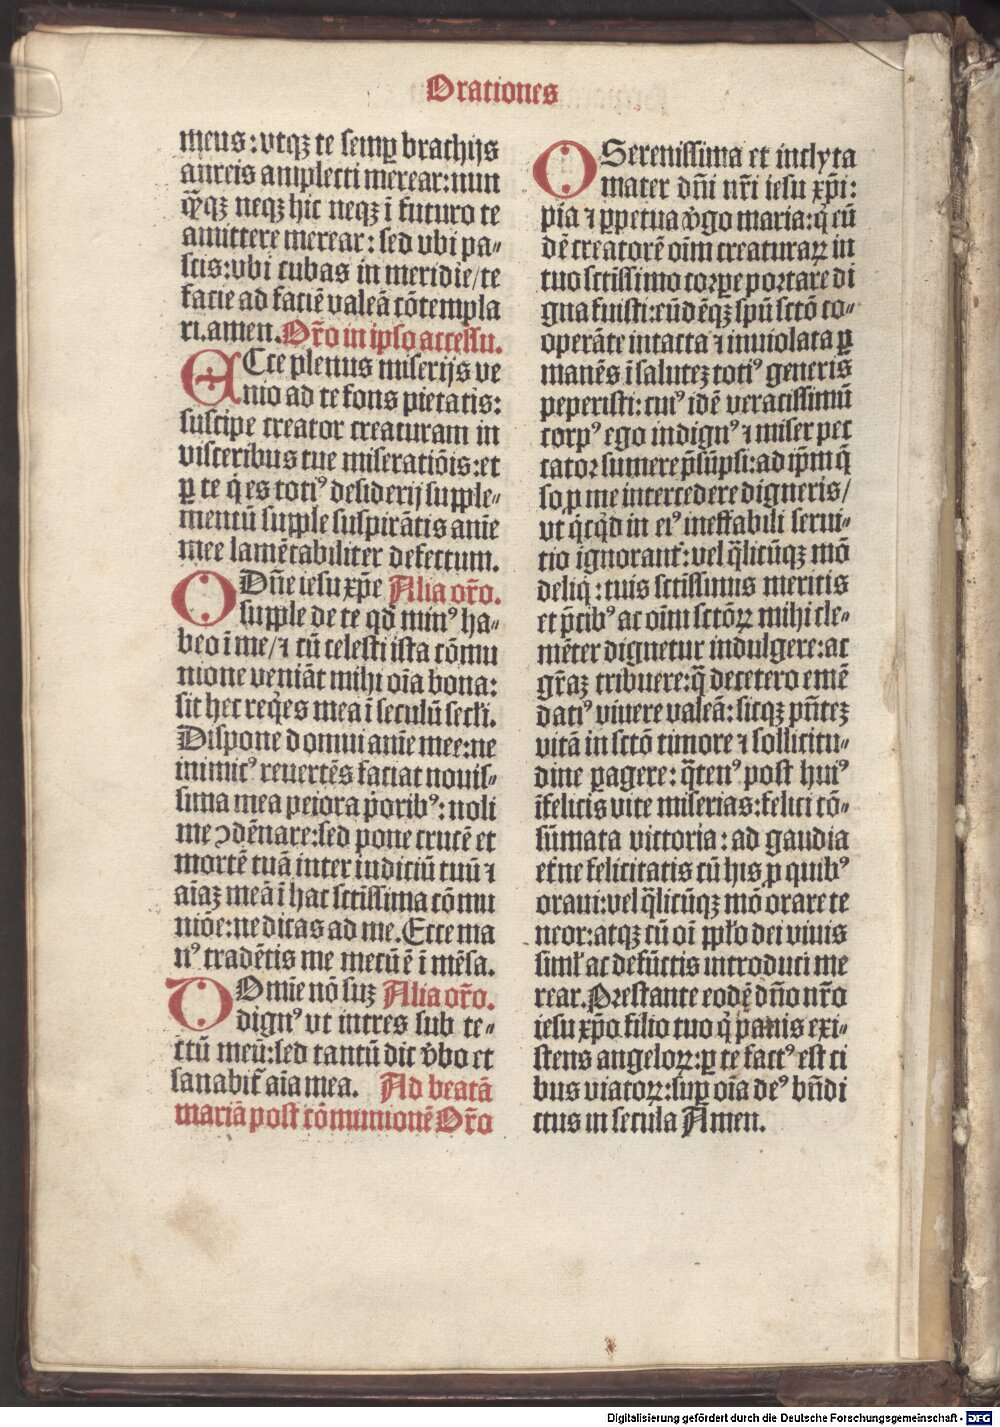 Orationes
meus: vtqꝫ te semꝑ brachijs
aureis amplecti merear: nun
q̃ꝫ neqꝫ hic neqꝫ ĩ futuro te
amittere merear: sed vbi pa⸗
scis: vbi cubas in meridie/te
facie ad faciẽ valeã cõtempla
ri. amen. Oŕo in ipso accessu.
ECce plenus miserijs ve
nio ad te fons pietatis:
suscipe creator creaturam in
visceribus tue miseratiõis: et
ꝑ te q̇ es totiꝰ desiderij supple⸗
mentũ supple suspirãtis anĩe
mee lamẽtabiliter defectum.
O Dñe iesu xp̃e Alia oŕo.
supple de te qd̃ minꝰ ha⸗
beo ĩ me/⁊ cũ celesti ista cõmu
nione veniãt mihi oĩa bona:
sit hec req̇es mea ĩ seculũ secĺi.
Dispone domui anĩe mee: ne
inimicꝰ reuertẽs faciat nouis⸗
sima mea peiora p̃oribꝰ: noli
me ꝯdẽnare: sed pone crucẽ et
mortẽ tuã inter iudiciũ tuũ ⁊
aĩaꝫ meã ĩ hac sctĩssima cõmu
niõe: ne dicas ad me. Ecce ma
nꝰ tradẽtis me mecũ ẽ ĩ mẽsa.
DOmie nõ suꝫ Alia oŕo.
dignꝰ vt intres sub te⸗
ctũ meũ: sed tantũ dic v̾bo et
sanabit̃ aĩa mea. Ad beatã
mariã post cõmunionẽ Oŕo
O Serenissima et inclyta
mater dñi nŕi iesu xp̃i:
pia ⁊ ꝑpetua v̾go maria: q̇ eũ
dẽ creatorẽ oĩm creaturaꝝ in
tuo sctĩssimo corꝑe portare di
gna fuisti: eũdẽqꝫ spũ sctõ co⸗
operãte intacta ⁊ inuiolata ꝑ
manẽs ĩ salutez totiꝰ generis
peperisti: cuiꝰ idẽ veracissimũ
corpꝰ ego indignꝰ ⁊ miser pec
cator sumere p̃sũpsi: ad ip̃m q̃
so, ꝓ me intercedere digneris/
vt q̇cq̇d in eiꝰ ineffabili serui⸗
tio ignorant̃: vel q̃licũqꝫ mõ
deliq̇: tuis sctĩssimis meritis
et p̃cibꝰ ac oĩm sctõꝝ mihi cle⸗
mẽter dignetur indulgere: ac
gŕaꝫ tribuere: q̃ decetero emẽ
datiꝰ viuere valeã: sitqꝫ pñtez
vitã in sctõ timore ⁊ sollicitu⸗
dine ꝑagere: q̃tenꝰ post huiꝰ
ĩfelicis vite miserias: felici cõ⸗
sũmata victoria: ad gaudia
et̾ne felicitatis cũ his, ꝓ quibꝰ
oraui: vel q̃licũqꝫ mõ orare te
neor: atqꝫ cũ oĩ ppĺo dei viuis
simĺ ac defũctis introduci me
rear. Prestante eodẽ dño nŕo
iesu xp̃o filio tuo q̇ panis exi⸗
stens angeloꝝ: ꝑ te factꝰ est ci
bus viatoꝝ: suꝑ oĩa deꝰ bñdi
ctus in secula Amen.
Digitalisierung gefördert durch die Deutsche Forschungsgemeinschaft - DFG